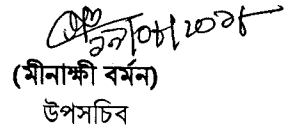 (মীনাক্ষী বর্মন)
উপসচিব